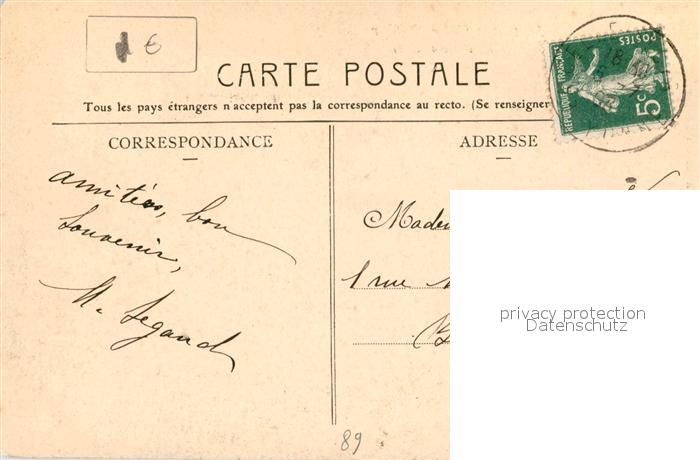 1 €
CARTE POSTALE
Tous les pays étrangers n'acceptent pas la correspondance au recto. (Se renseigner
POSTES
RÉPUBLIQUE FRANÇAISE
5c
CORRESPONDANCE
ADRESSE
amitiés, bon
souvenir,
Madem
1 rue
privacy protection
Datenschutz
89